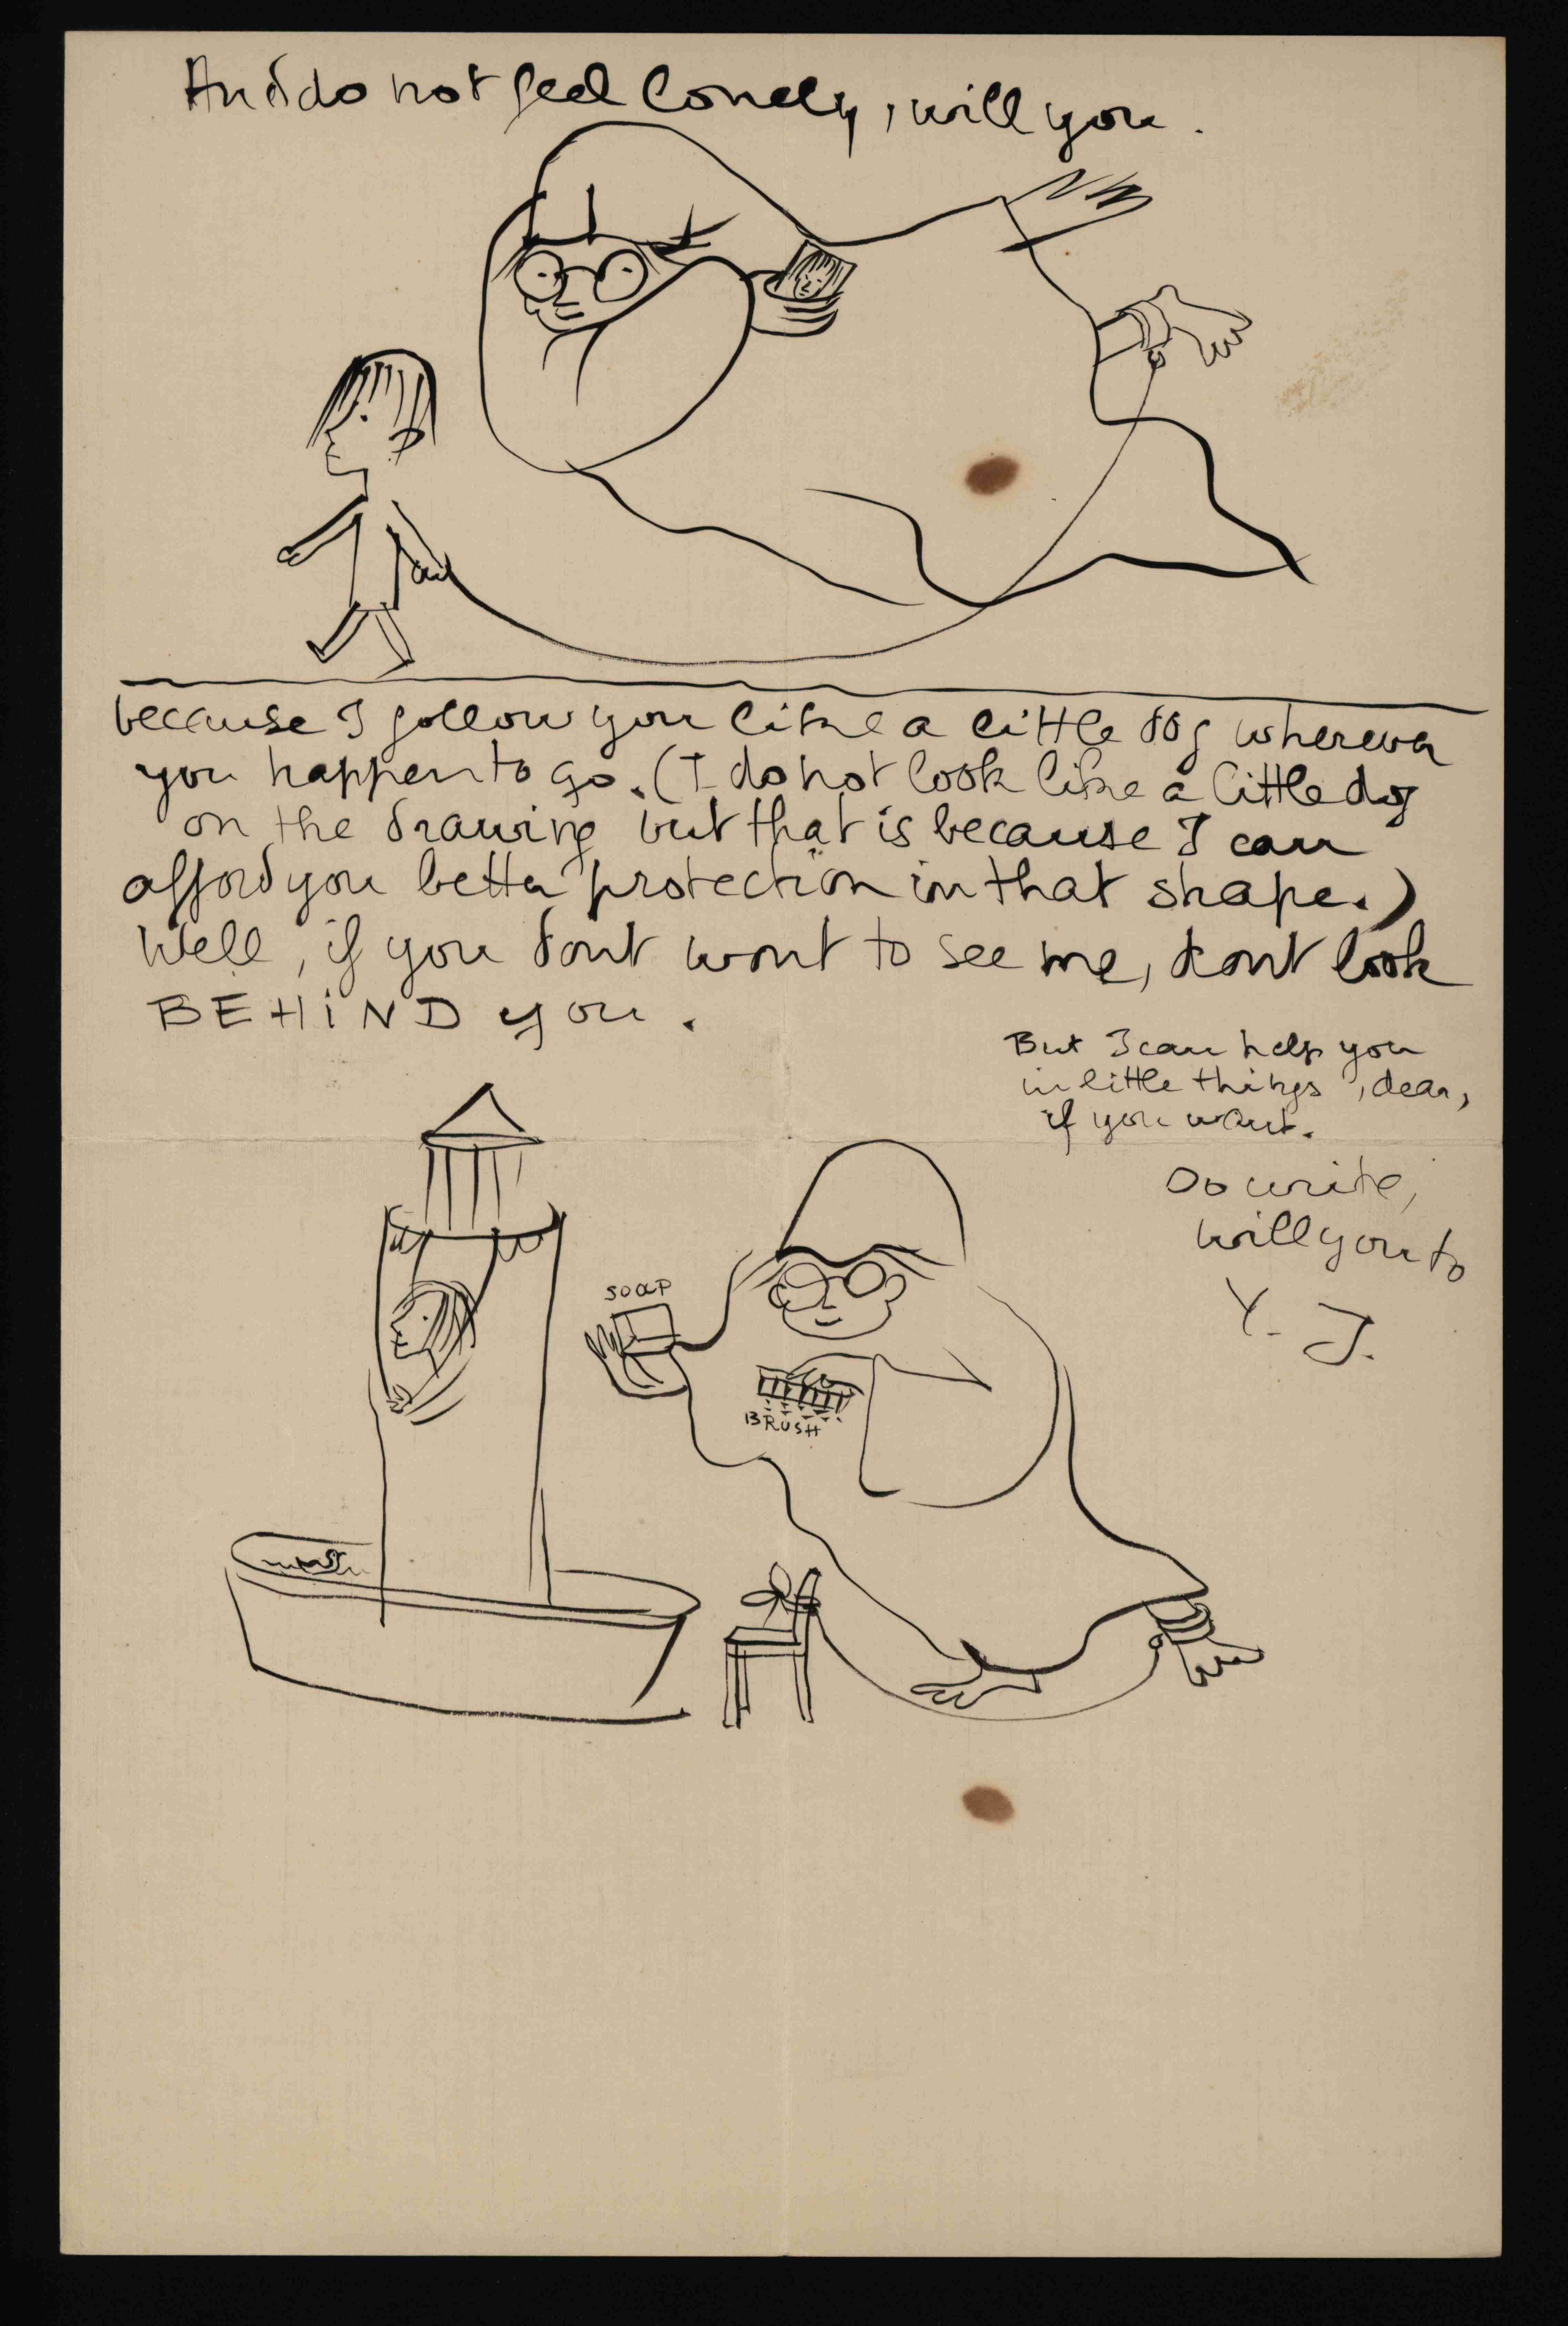 And do not feel lonely, will you.
because I follow you like a little dog wherever
you happen to go. (I do not look like a little dog
on the drawing but that is because I can
afford you better protection in that shape.)
Well, if you dont want to see me, dont look
BEHIND you.
But I can help you
in little things, dear,
if you want.
Do write,
will you to
Y. J.
SOAP
BRUSH